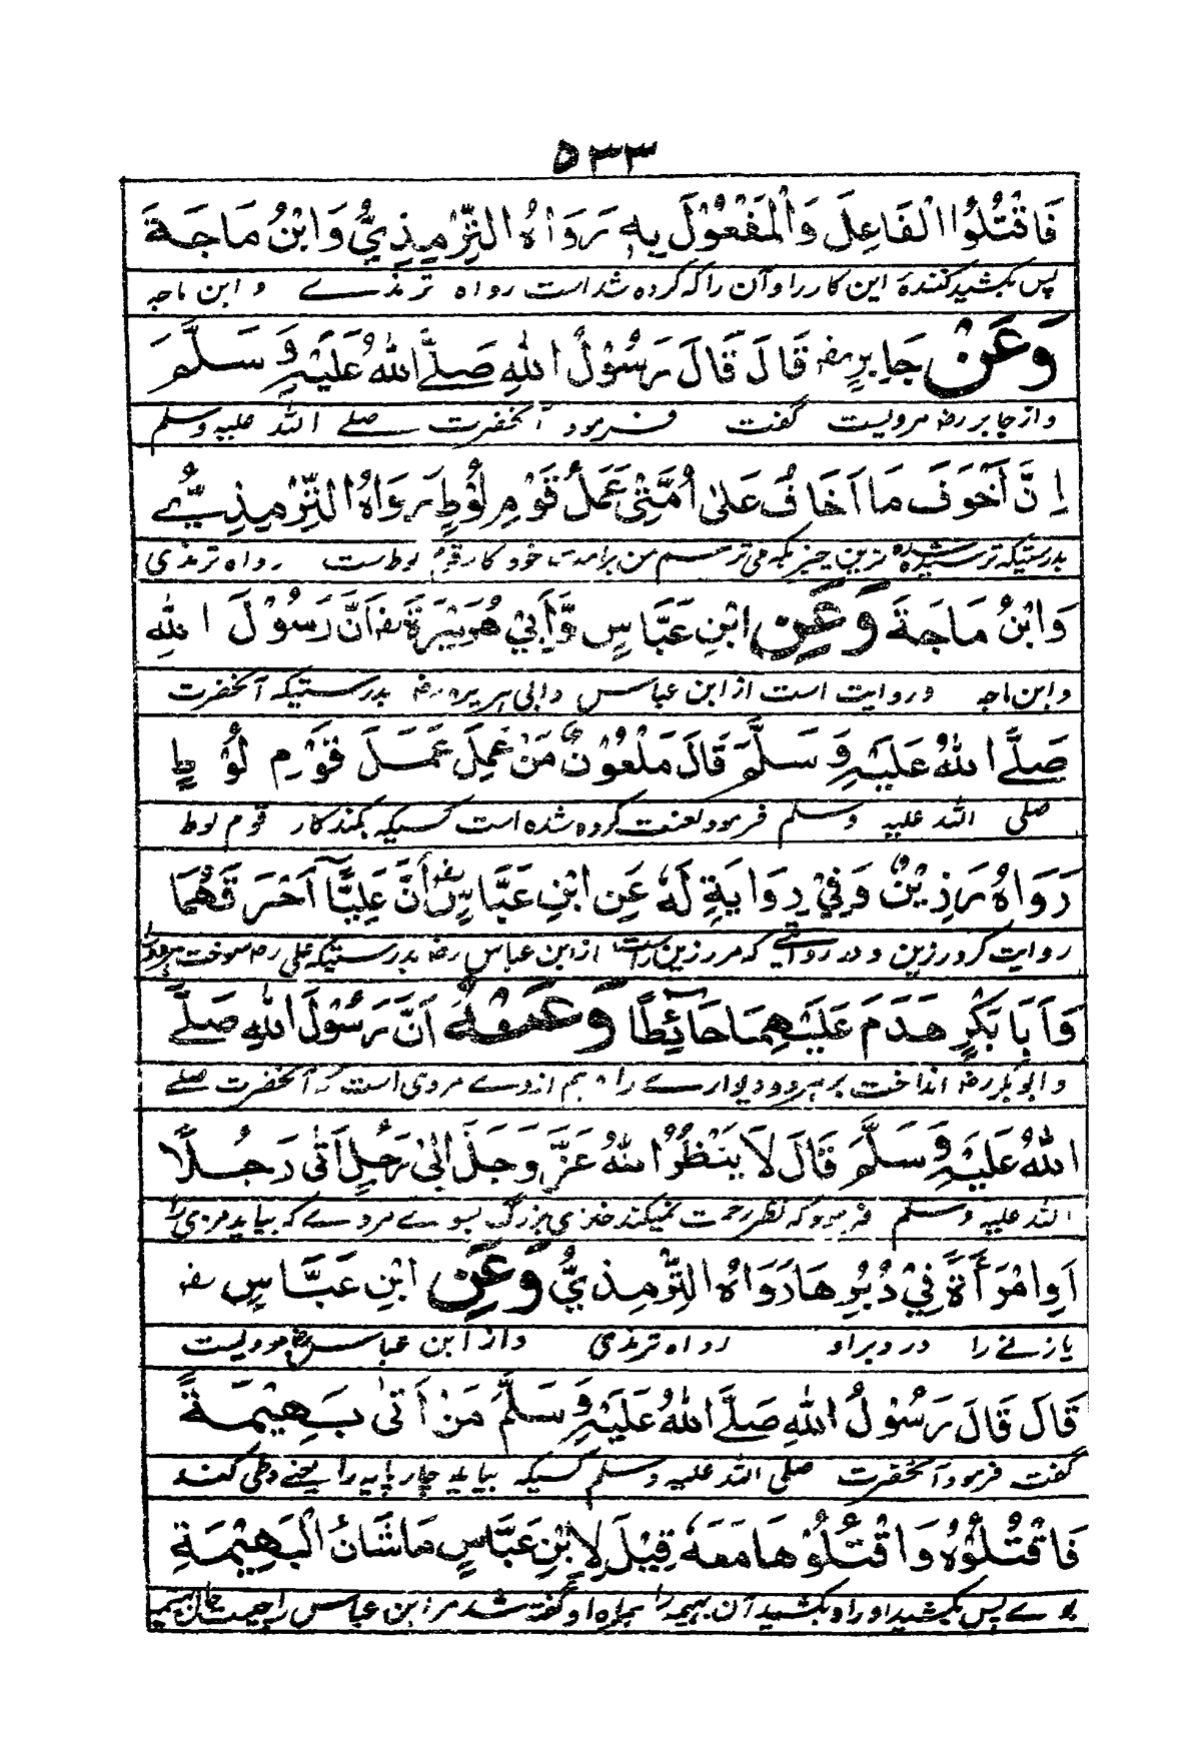 ۵۳۳
فَاقْتُلُوا الْفَاعِلَ وَالْمَفْعُوْلَ بِهٖ رَوَاهُ التِّرْمِذِيُّ وَابْنُ مَاجَةَ
پس بکشید کنندهٔ این کار را و آن را که کرده شد است رواه ترمذے و ابن ماجه
وَعَنْ جَابِرٍ رضـ قَالَ قَالَ رَسُوْلُ اللهِ صَلَّے اللهُ عَلَيْهِ وَسَلَّمَ
و از جابر رضـ مرویست گفت فرمود آنحضرت صلے الله علیه وسلم
اِنَّ اَخْوَفَ مَا اَخَافُ عَلىٰ اُمَّتِيْ عَمَلُ قَوْمِ لُوْطٍ رَوَاهُ التِّرْمِذِيُّ
بدرستیکه ترسیده ترین چیزیکه می ترسم من بر امت خود کار قوم لوط ست رواه ترمذی
وَابْنُ مَاجَةَ وَعَنِ ابْنِ عَبَّاسٍ وَّاَبِيْ هُرَيْرَةَ رضـ اَنَّ رَسُوْلَ اللهِ
و ابن ماجه و روایت است از ابن عباس و ابی هریره رضـ بدرستیکه آنحضرت
صَلَّے اللهُ عَلَيْهِ وَسَلَّمَ قَالَ مَلْعُوْنٌ مَنْ عَمِلَ عَمَلَ قَوْمِ لُوْطٍ
صلی الله علیه وسلم فرمود لعنت کرده شده است کسیکه بکند کار قوم لوط
رَوَاهُ رَزِيْنٌ وَفِيْ رِوَايَةٍ لَهٗ عَنِ ابْنِ عَبَّاسٍ رضـ اَنَّ عَلِيًّا اَحْرَقَهُمَا
روایت کرد رزین و در روایتے که مر رزین راست از ابن عباس رضـ بدرستیکه علی رضـ سوخت
وَاَبَا بَكْرٍ هَدَمَ عَلَيْهِمَا حَائِطًا وَعَنْهُ اَنَّ رَسُوْلَ اللهِ صَلَّے
و ابوبکر رضـ انداخت بر هردو دیوارے را هم ازوے مروی است که آنحضرت صلے
اللهُ عَلَيْهِ وَسَلَّمَ قَالَ لَا يَنْظُرُ اللهُ عَزَّ وَجَلَّ اِلىٰ رَجُلٍ اَتىٰ رَجُلًا
الله علیه وسلم فرمود که نظر رحمت نمیکند خدای بزرگ بسوے مردے که بیاید مردی را
اَوِ امْرَأَةً فِيْ دُبُرِهَا رَوَاهُ التِّرْمِذِيُّ وَعَنِ ابْنِ عَبَّاسٍ رضـ
یا زنے را در دبر او رواه ترمذی و از ابن عباس رضـ مرویست
قَالَ قَالَ رَسُوْلُ اللهِ صَلَّے اللهُ عَلَيْهِ وَسَلَّمَ مَنْ اَتىٰ بَهِيْمَةً
گفت فرمود آنحضرت صلی الله علیه وسلم کسیکه بیاید چارپایه را یعنے وطی کند
فَاقْتُلُوْهُ وَاقْتُلُوْهَا مَعَهٗ قِيْلَ لِابْنِ عَبَّاسٍ مَا شَانُ الْبَهِيْمَةِ
پس بکشید او را و بکشید آن بهیمه را همراه او گفته شد مر ابن عباس را چیست حال بهیمه